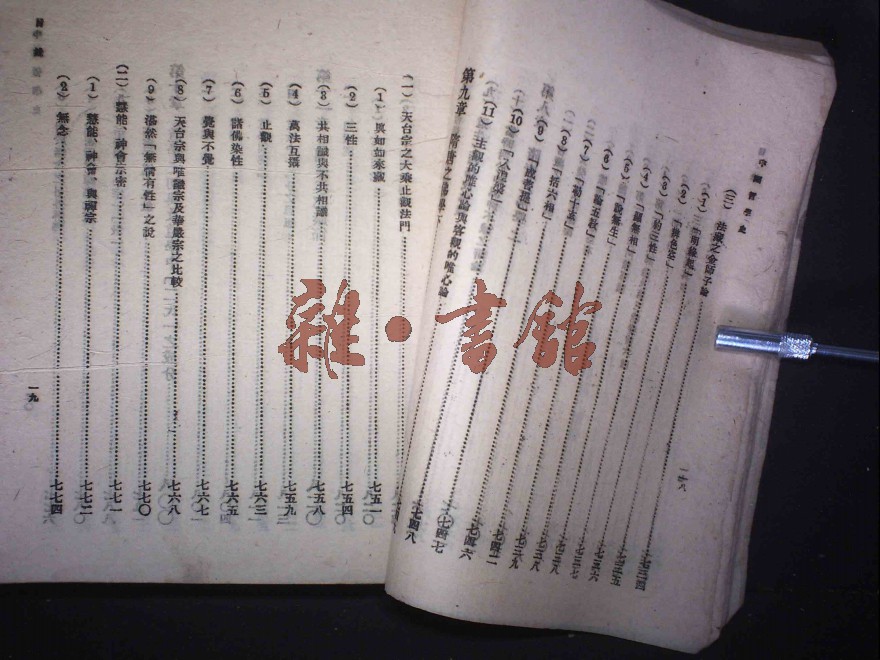 中國哲學史
(三) 法藏之金師子論 七三四
(1) 「明緣起」
(2) 「辨色空」
(3) 「約三性」
(4) 「顯無相」
(5) 「說無生」
(6) 「論五教」
(7) 「勒十玄」 七三七
(8) 「括六相」 七三八
(9) 「成菩提」 七三九
(10) 「入涅槃」 七四二
(11) 主觀的唯心論與客觀的唯心論 七四六
第九章 隋唐之佛學下 七四八
一八
(一) 天台宗之大乘止觀法門
(1) 眞如如來藏 七五一
(2) 三性 七五四
(3) 共相識與不共相識 七五八
(4) 萬法互攝 七五九
(5) 止觀 七六三
(6) 諸佛染性 七六五
(7) 覺與不覺 七六七
(8) 天台宗與唯識宗及華嚴宗之比較 七六八
(9) 湛然「無情有性」之說 七七〇
(二) 慧能、神會、宗密 七七一
(1) 慧能、神會、與禪宗 七七二
(2) 無念 七七四
一九
雜·書館